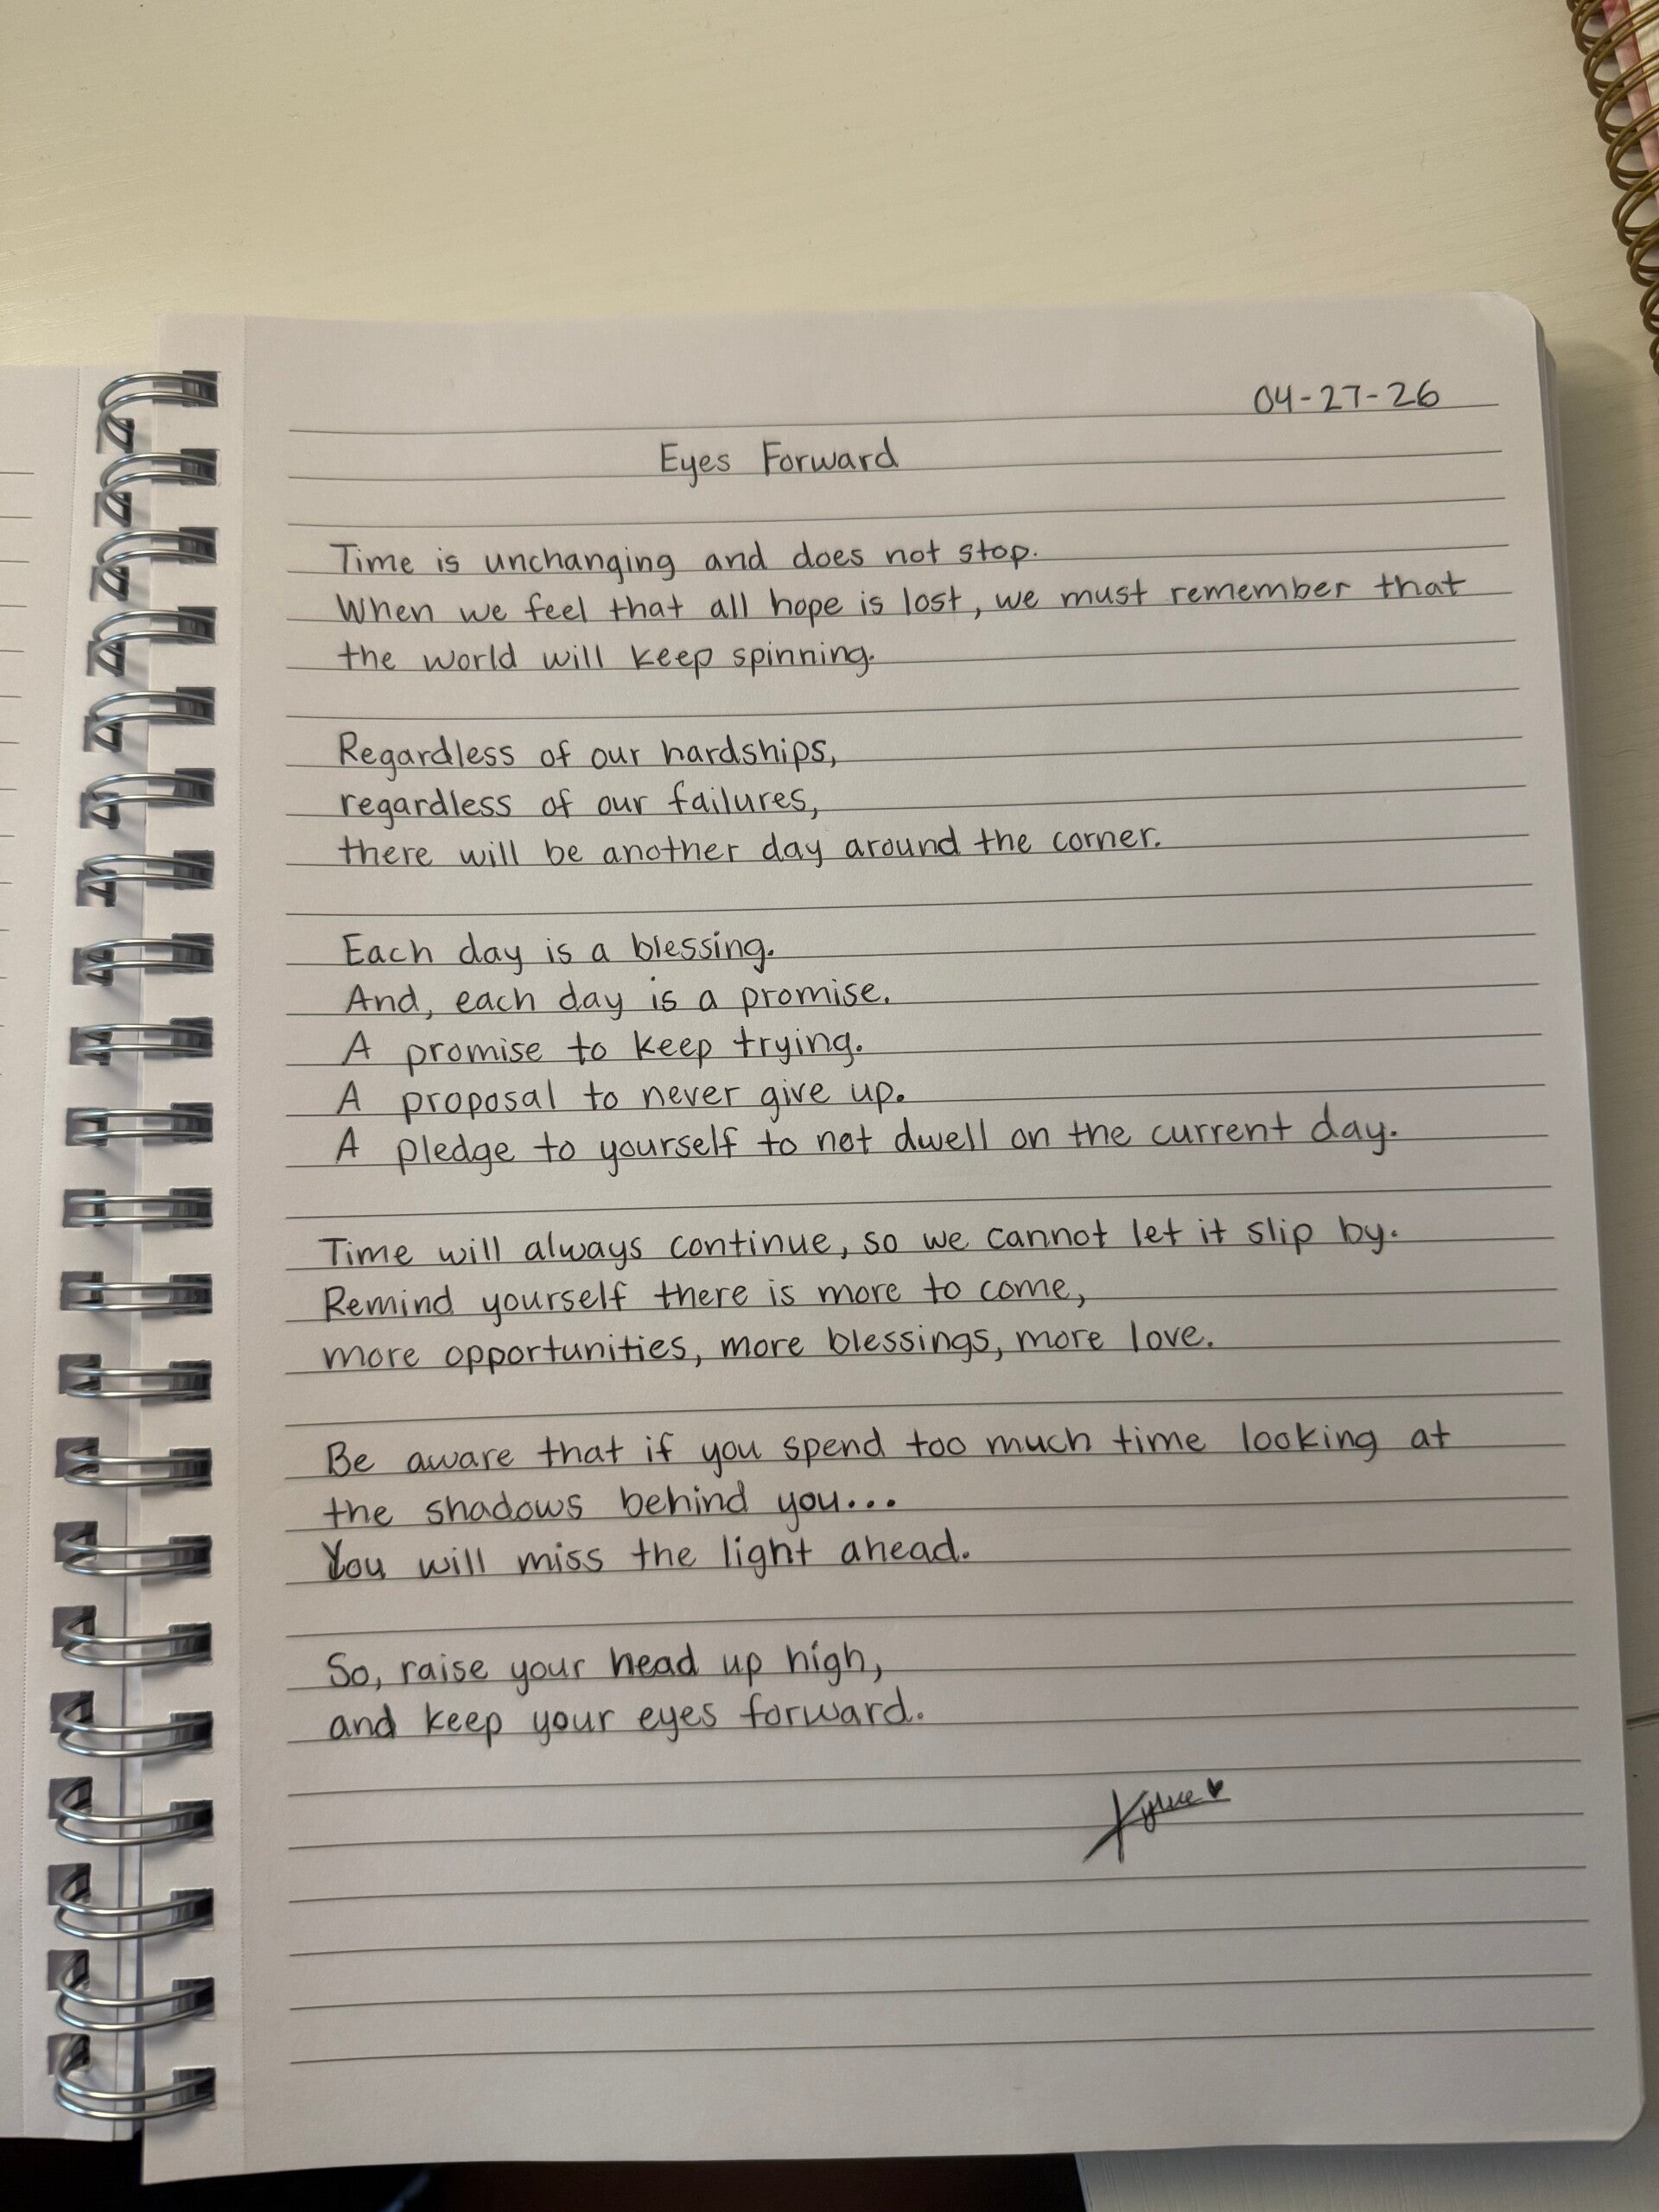 04-27-26
Eyes Forward
Time is unchanging and does not stop.
When we feel that all hope is lost, we must remember that
the world will keep spinning.
Regardless of our hardships,
regardless of our failures,
there will be another day around the corner.
Each day is a blessing.
And, each day is a promise.
A promise to keep trying.
A proposal to never give up.
A pledge to yourself to not dwell on the current day.
Time will always continue, so we cannot let it slip by.
Remind yourself there is more to come,
more opportunities, more blessings, more love.
Be aware that if you spend too much time looking at
the shadows behind you...
You will miss the light ahead.
So, raise your head up high,
and keep your eyes forward.